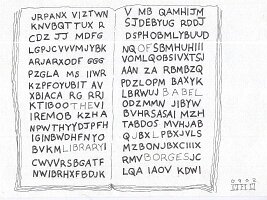 JRPANX VIZTWN
KNVBQTTUX R
CDZ JJ MDFG
LGPJCVVVMJYBK
ARJARXODF GGG
PZGLA MS IIWR
KZPFOYUBIT AV
XBIACA RG RRJ
KTIBOOTHEVI
IREMOB KZHA
NPWTHYYDJPFH
IGINBWDHFNYO
BVKMLIBRARYI
CWVVRSBGATF
NWIBRHXFBDJK
V MB QAMHIJM
SJDEBYUG RDDJ
DSPHOBMLYBUUD
NQOFSBMHUHIII
VOMLQOBSIVXTSJ
AAN ZA RBMBZQ
PDZLOPM BAXYK
LBRWUJBABEL
ODZMMN JIBYW
BVHRSASAI MZH
TABDOS MVHJAB
QJBXLPBXJVLS
MZBONJBXCIIIX
RMYBORGESJC
LQA IAOV KDWI